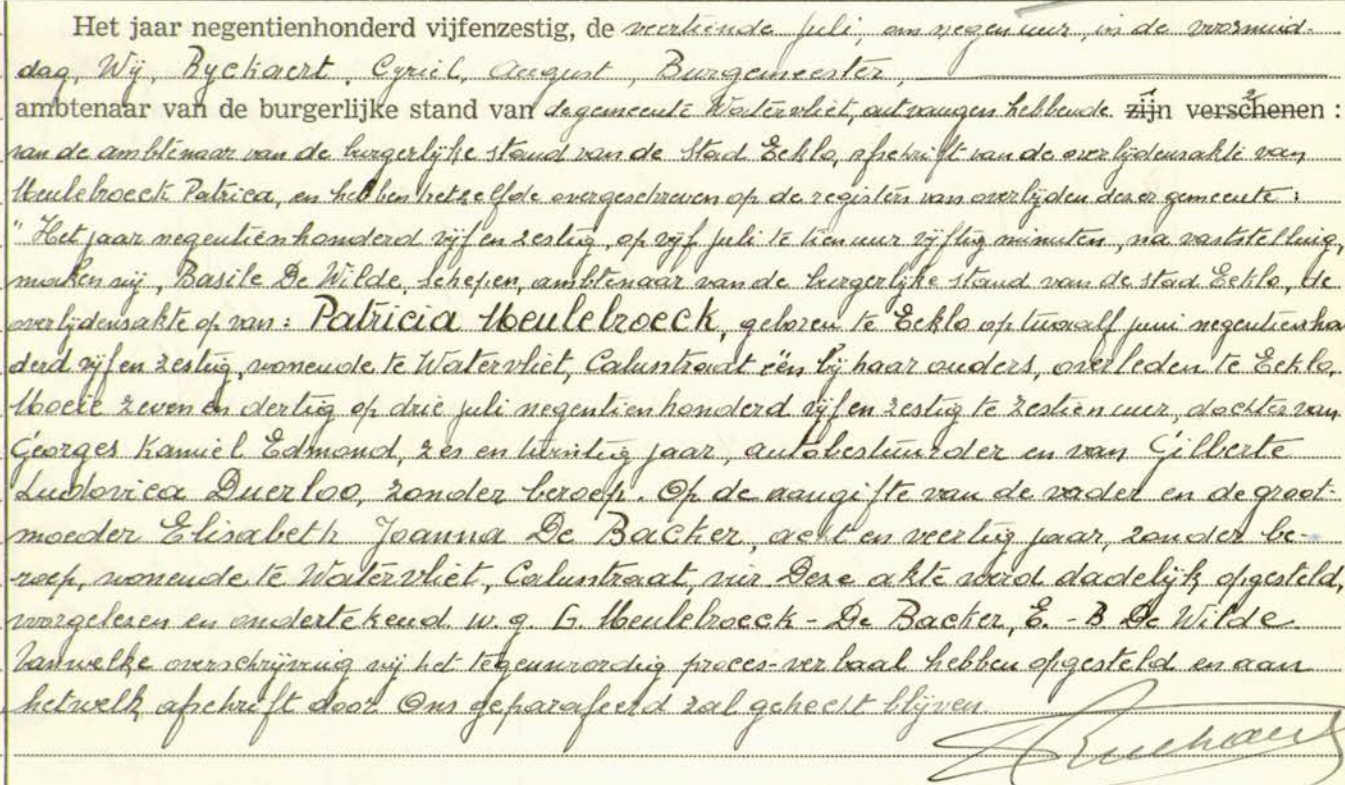 Het jaar negentienhonderd vijfenzestig, de veertiende juli, om negen uur, in de voormid-
dag, Wij, Ryckaert, Cyriel, August, Burgemeester,
ambtenaar van de burgerlijke stand van de gemeente Watervliet, ontvangen hebbende zijn verschenen :
van de ambtenaar van de burgerlijke stand van de Stad Eeklo, afschrift van de overlijdensakte van
Meulebroeck Patrica, en hebben hetzelfde overgeschreven op de registers van overlijden dezer gemeente :
"Het jaar negentienhonderd vijf en zestig, op vijf juli te tien uur vijftig minuten, na vaststelling,
maken wij, Basile De Wilde, schepen, ambtenaar van de burgerlijke stand van de stad Eeklo, de
overlijdensakte op van : Patricia Meulebroeck, geboren te Eeklo op twaalf juni negentienhon
derd vijf en zestig, wonende te Watervliet, Calusstraat één bij haar ouders, overleden te Eeklo,
Moeie zeven en dertig op drie juli negentienhonderd vijf en zestig te zestien uur, dochter van
Georges Kamiel Edmond, zes en twintig jaar, autobestuurder en van Gilberte
Ludovica Duerloo, zonder beroep. Op de aangifte van de vader en de groot-
moeder Elisabeth Joanna De Backer, acht en veertig jaar, zonder be-
roep, wonende te Watervliet, Calusstraat, vier Deze akte werd dadelijk opgesteld,
voorgelezen en ondertekend. w.g. G. Meulebroeck - De Backer, E. - B De Wilde
Vanwelke overschrijving wij het tegenwoordig proces-verbaal hebben opgesteld en aan
hetwelk afschrift door Ons geparafeerd zal gehecht blijven.